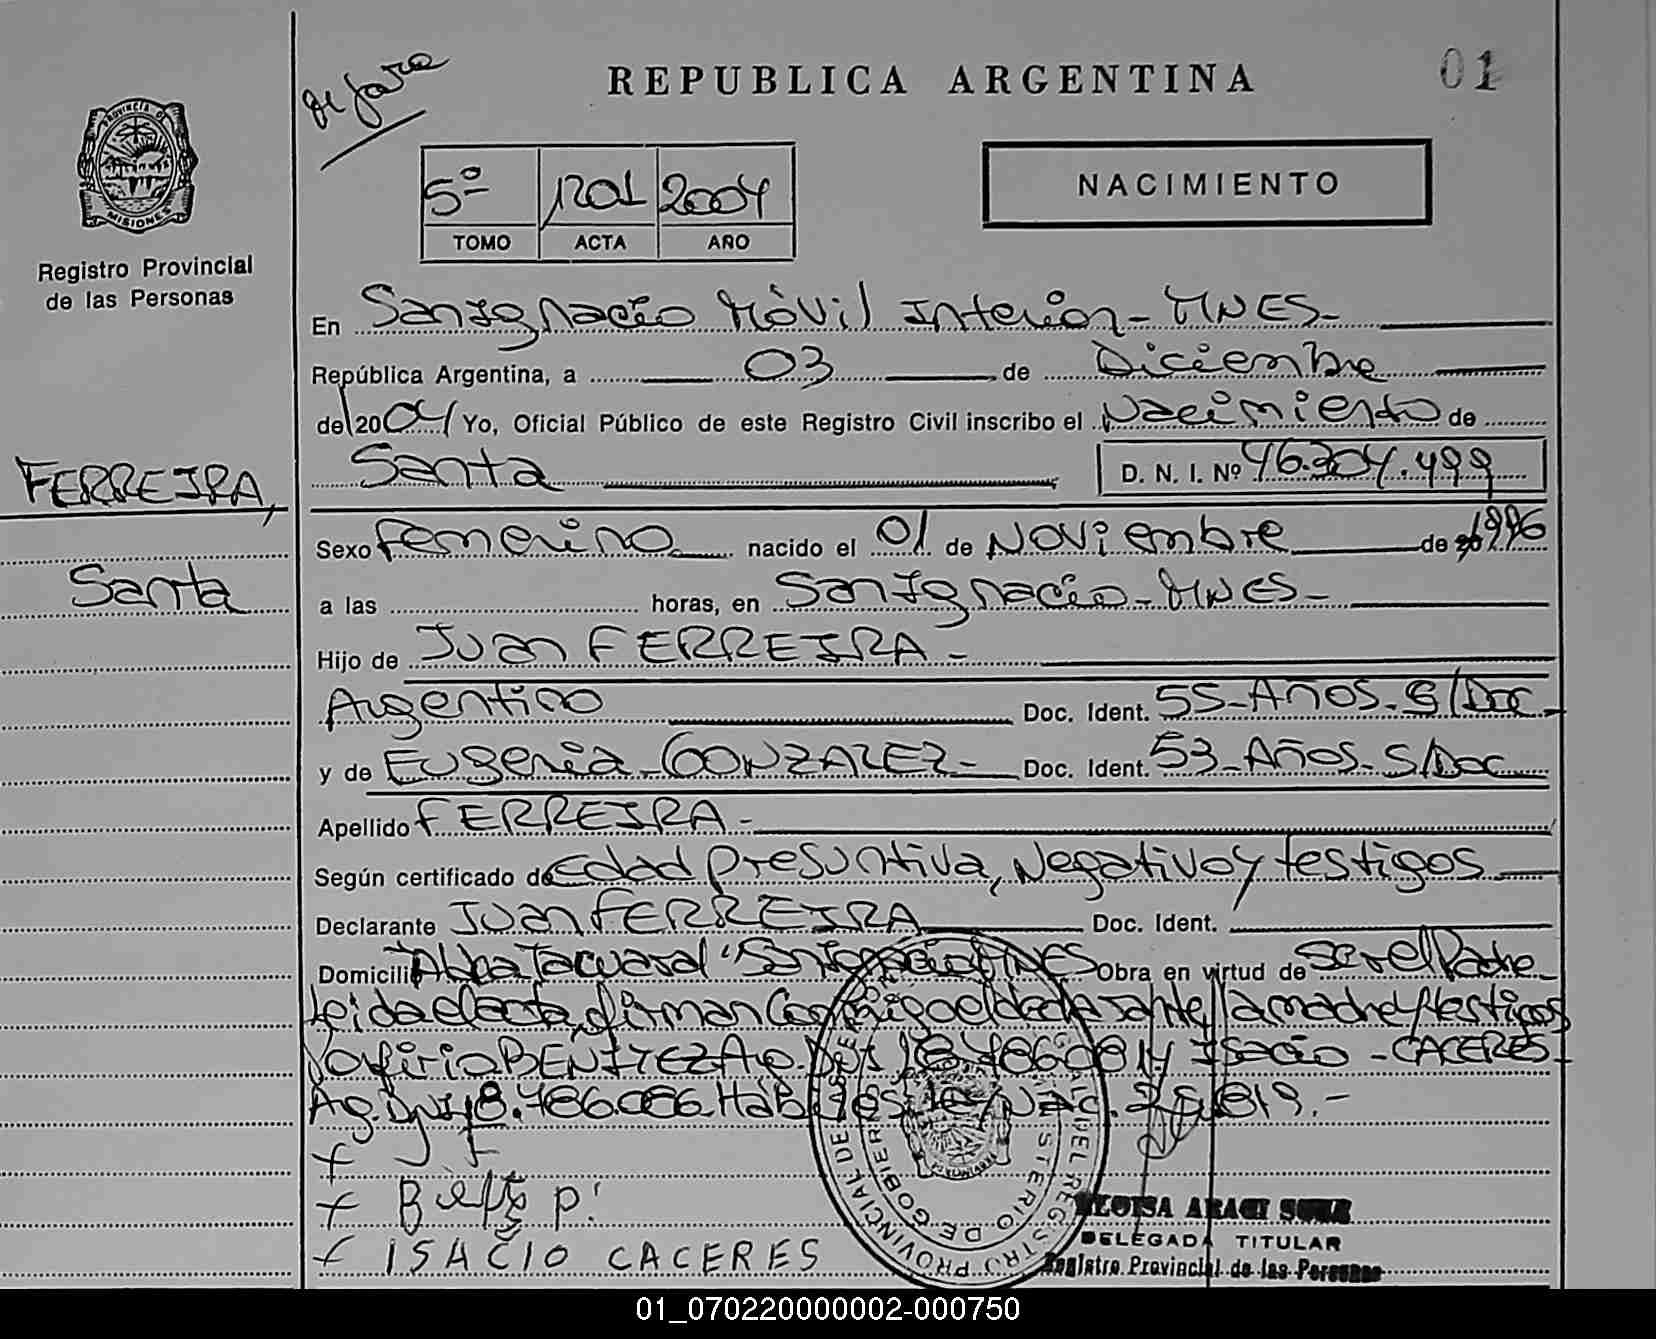 REPUBLICA ARGENTINA
01
NACIMIENTO
5º 1201 2004
TOMO ACTA AÑO
PROVINCIA DE
MISIONES
Registro Provincial
de las Personas
En San Ignacio Móvil Interior - MNES -
República Argentina, a 03 de Diciembre
de 2004 Yo, Oficial Público de este Registro Civil inscribo el Nacimiento de
Santa D. N. I. Nº 46.304.499
FERREIRA,
Santa
Sexo Femenino nacido el 01 de Noviembre de 1996
a las horas, en San Ignacio - MNES -
Hijo de Juan FERREIRA -
Argentino Doc. Ident. 55 - Años - S/Doc -
y de Eugenia - GONZALEZ - Doc. Ident. 53 - Años - S/Doc
Apellido FERREIRA -
Según certificado de edad presuntiva, Negativo y testigos
Declarante Juan FERREIRA Doc. Ident.
Domicilio Aldea Tacuaral "San Ignacio MNES Obra en virtud de Ser el Padre
Leida el acta, firman Conmigo el declarante, la madre y testigos
BENITEZ Ag. DNI 18. y Isacio - CACERES -
Ag. DNI 18.486.086 Habiles Ley Nac. 25.819.-
ISACIO CACERES
DELEGADA TITULAR
Registro Provincial de las Personas
01_070220000002-000750